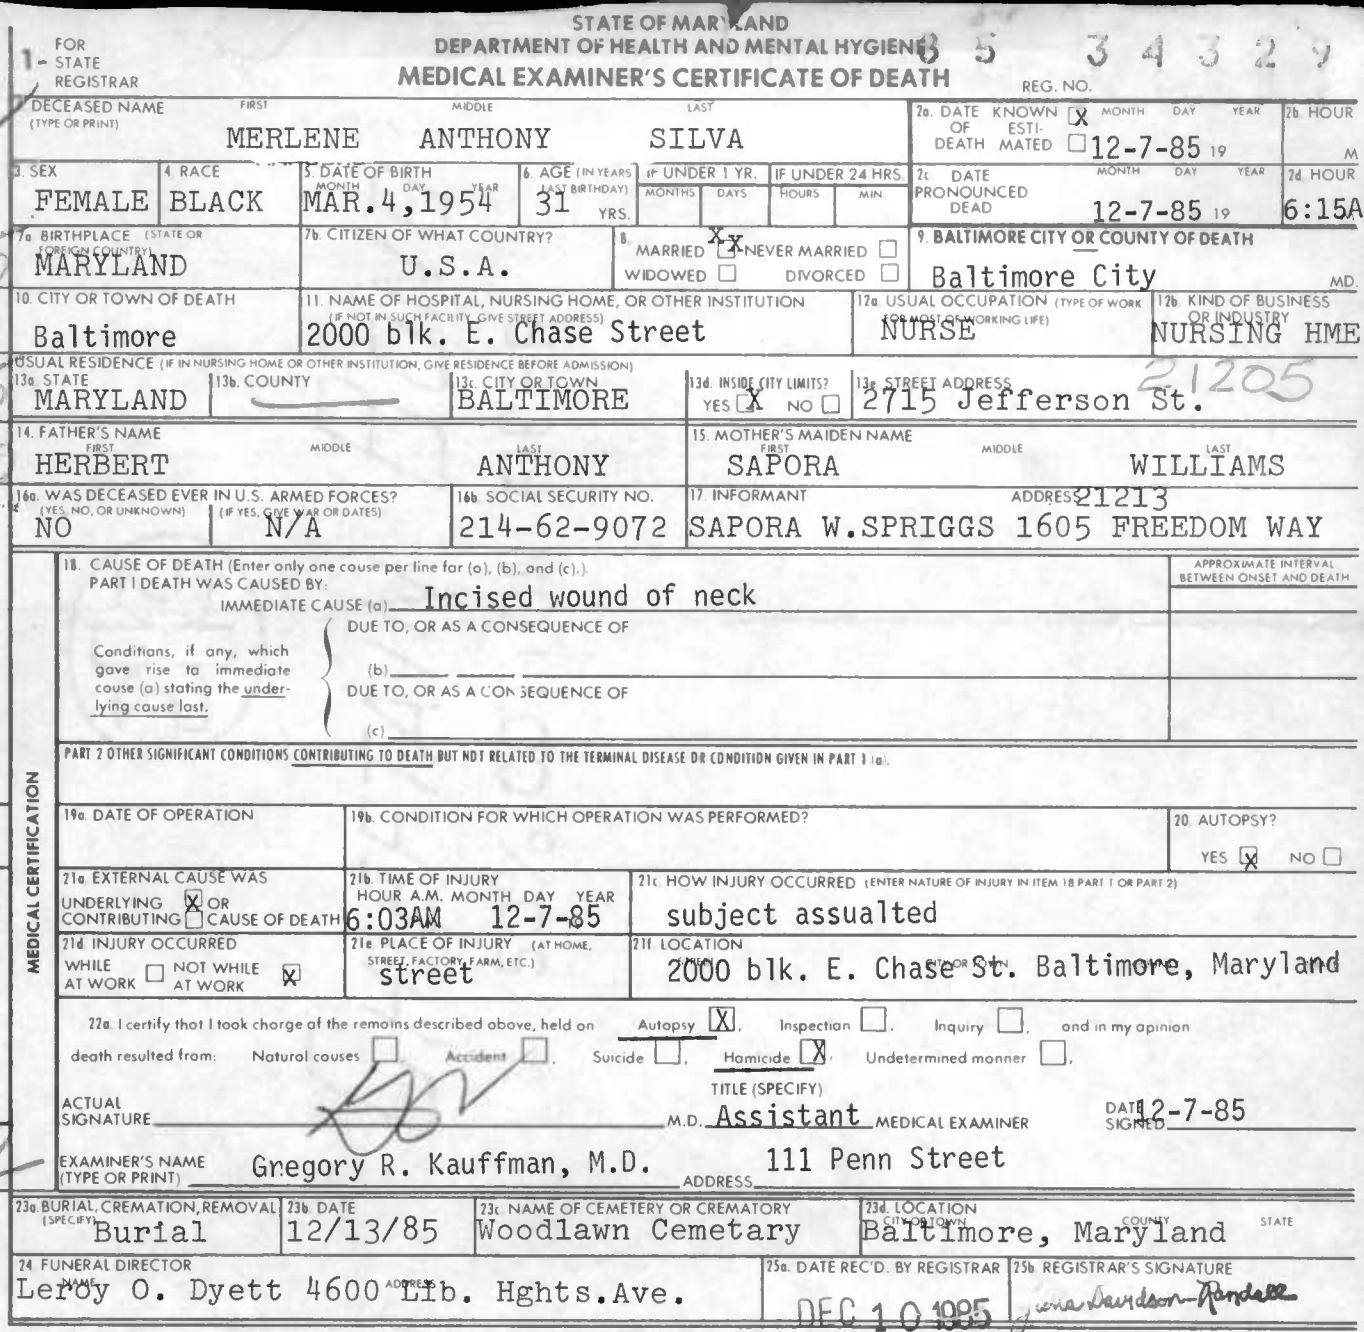 STATE OF MARYLAND
DEPARTMENT OF HEALTH AND MENTAL HYGIENE
MEDICAL EXAMINER'S CERTIFICATE OF DEATH
1- FOR STATE REGISTRAR
REG. NO. 85 34329
DECEASED NAME (TYPE OR PRINT) FIRST MIDDLE LAST
MERLENE ANTHONY SILVA
2a. DATE OF DEATH KNOWN X ESTIMATED MONTH DAY YEAR 12-7-85 19
2b. HOUR M
3. SEX FEMALE
4. RACE BLACK
5. DATE OF BIRTH MONTH DAY YEAR MAR.4,1954
6. AGE (IN YEARS LAST BIRTHDAY) 31 YRS.
IF UNDER 1 YR. MONTHS DAYS
IF UNDER 24 HRS. HOURS MIN.
2c. DATE PRONOUNCED DEAD MONTH DAY YEAR 12-7-85 19
2d. HOUR 6:15A
7a. BIRTHPLACE (STATE OR FOREIGN COUNTRY) MARYLAND
7b. CITIZEN OF WHAT COUNTRY? U.S.A.
8. MARRIED XX NEVER MARRIED
WIDOWED DIVORCED
9. BALTIMORE CITY OR COUNTY OF DEATH Baltimore City MD.
10. CITY OR TOWN OF DEATH Baltimore
11. NAME OF HOSPITAL, NURSING HOME, OR OTHER INSTITUTION (IF NOT IN SUCH FACILITY, GIVE STREET ADDRESS) 2000 blk. E. Chase Street
12a. USUAL OCCUPATION (TYPE OF WORK FOR MOST OF WORKING LIFE) NURSE
12b. KIND OF BUSINESS OR INDUSTRY NURSING HME
USUAL RESIDENCE (IF IN NURSING HOME OR OTHER INSTITUTION, GIVE RESIDENCE BEFORE ADMISSION)
13a. STATE MARYLAND
13b. COUNTY
13c. CITY OR TOWN BALTIMORE
13d. INSIDE CITY LIMITS? YES X NO
13e. STREET ADDRESS 2715 Jefferson St. 21205
14. FATHER'S NAME FIRST MIDDLE LAST HERBERT ANTHONY
15. MOTHER'S MAIDEN NAME FIRST MIDDLE LAST SAPORA WILLIAMS
16a. WAS DECEASED EVER IN U.S. ARMED FORCES? (YES, NO, OR UNKNOWN) NO (IF YES, GIVE WAR OR DATES) N/A
16b. SOCIAL SECURITY NO. 214-62-9072
17. INFORMANT ADDRESS 21213
SAPORA W.SPRIGGS 1605 FREEDOM WAY
MEDICAL CERTIFICATION
18. CAUSE OF DEATH (Enter only one cause per line for (a), (b), and (c).)
PART I DEATH WAS CAUSED BY:
IMMEDIATE CAUSE (a) Incised wound of neck
APPROXIMATE INTERVAL BETWEEN ONSET AND DEATH
DUE TO, OR AS A CONSEQUENCE OF
Conditions, if any, which gave rise to immediate cause (a) stating the underlying cause last.
(b)
DUE TO, OR AS A CONSEQUENCE OF
(c)
PART 2 OTHER SIGNIFICANT CONDITIONS CONTRIBUTING TO DEATH BUT NOT RELATED TO THE TERMINAL DISEASE OR CONDITION GIVEN IN PART 1 (a).
19a. DATE OF OPERATION
19b. CONDITION FOR WHICH OPERATION WAS PERFORMED?
20. AUTOPSY? YES X NO
21a. EXTERNAL CAUSE WAS UNDERLYING X OR CONTRIBUTING CAUSE OF DEATH
21b. TIME OF INJURY HOUR A.M. MONTH DAY YEAR 6:03AM 12-7-85
21c. HOW INJURY OCCURRED (ENTER NATURE OF INJURY IN ITEM 18 PART 1 OR PART 2) subject assualted
21d. INJURY OCCURRED WHILE AT WORK NOT WHILE AT WORK X
21e. PLACE OF INJURY (AT HOME, STREET, FACTORY, FARM, ETC.) street
21f. LOCATION 2000 blk. E. Chase St. Baltimore, Maryland
22a. I certify that I took charge of the remains described above, held on Autopsy X, Inspection, Inquiry, and in my opinion
death resulted from: Natural causes, Accident, Suicide, Homicide X, Undetermined manner,
ACTUAL SIGNATURE M.D. TITLE (SPECIFY) Assistant MEDICAL EXAMINER DATE SIGNED 12-7-85
EXAMINER'S NAME (TYPE OR PRINT) Gregory R. Kauffman, M.D. ADDRESS 111 Penn Street
23a. BURIAL, CREMATION, REMOVAL (SPECIFY) Burial
23b. DATE 12/13/85
23c. NAME OF CEMETERY OR CREMATORY Woodlawn Cemetary
23d. LOCATION CITY OR TOWN COUNTY STATE Baltimore, Maryland
24. FUNERAL DIRECTOR NAME ADDRESS Leroy O. Dyett 4600 Lib. Hghts.Ave.
25a. DATE REC'D. BY REGISTRAR DEC 10 1985
25b. REGISTRAR'S SIGNATURE Davidson-Randall